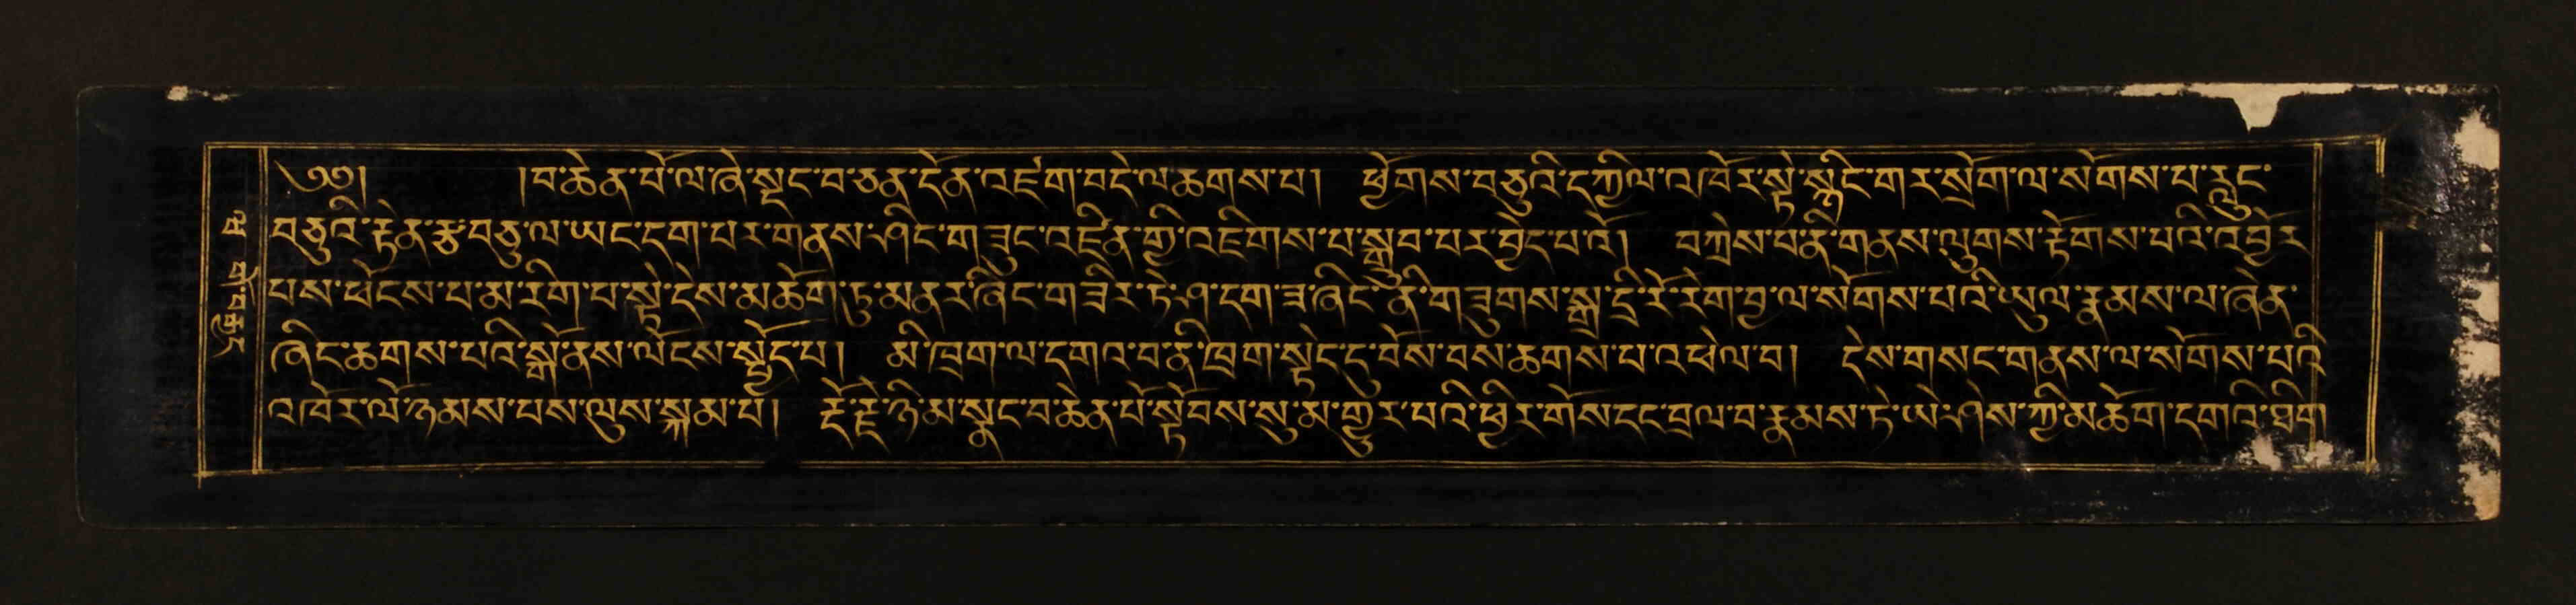 ༄༅། །བ་ཆེན་པོ་ལ་ཞེ་སྡང་བ་ཅན་དོན་འཇུག་བདེ་ལ་ཆགས་པ། ཕྱོགས་བཅུའི་དཀྱིལ་འཁོར་སྟེ་སྙིང་གར་སྲོག་ལ་སོགས་པ་རླུང་
བཅུའི་རྟེན་རྩ་བཅུ་ལ་ཡང་དག་པར་གནས་ཤིང་གཟུང་འཛིན་གྱི་འཇིགས་པ་སྒྲུབ་པར་བྱེད་པ་འོ། བཀྲེས་པ་ནི་གནས་ལུགས་རྟོགས་པའི་འབྱོར
པས་ཕོངས་པ་མ་རིག་པ་སྟེ་དེས་མཆོག་ཏུ་མནར་ཞིང་གཟིར་ཏེ་ཤ་དག་ཟ་ཞིང་ནི་གཟུགས་སྒྲ་དྲི་རོ་རེག་བྱ་ལ་སོགས་པའི་ཡུལ་རྣམས་ལ་ཞེན་
ཞིང་ཆགས་པའི་སྒོ་ནས་ལོངས་སྤྱོད་པ། མི་ཁྲག་ལ་དགའ་བ་ནི་ཁྲག་སྟེང་དུ་བོས་བས་ཆགས་པ་འཕེལ་བ། དེས་གསང་གནས་ལ་སོགས་པའི
འཁོར་ལོ་ཉམས་པས་ལུས་སྐམ་པ། རྡོ་རྗེ་ཉི་མ་སྣང་བ་ཆེན་པོ་སྟོབས་སུ་མ་གྱུར་པའི་ཕྱིར་གོས་དང་བྲལ་བ་རྣམས་ཏེ་ཡེ་ཤེས་ཀྱི་མཆོག་དགའི་ཐིག